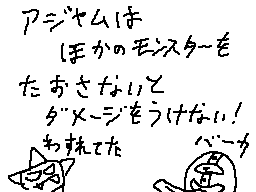 アジャムは
ほかのモンスターを
たおさないと
ダメージをうけない!
わすれてた
バーカ